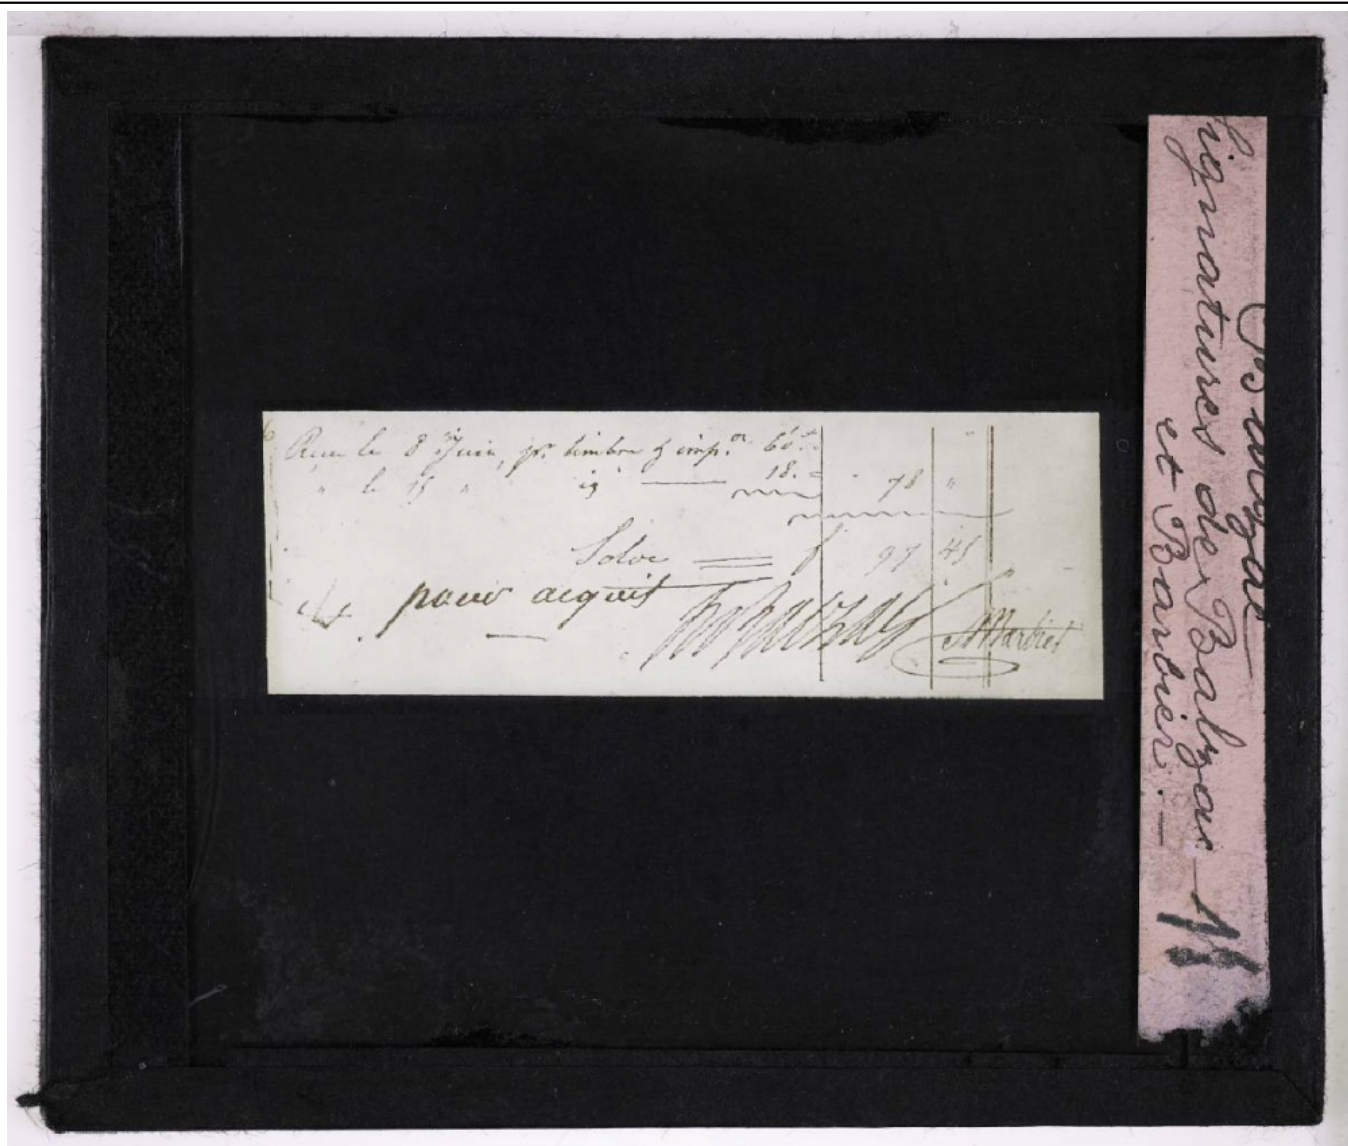 Reçu le 8 Juin, pr. timbre & imp.on 60. "
" le 15 " id 18. " 78 "
Solde f 97 45
pour acquit
H Balzac ABarbier
Balzac
Signatures de Balzac
et Barbier. —